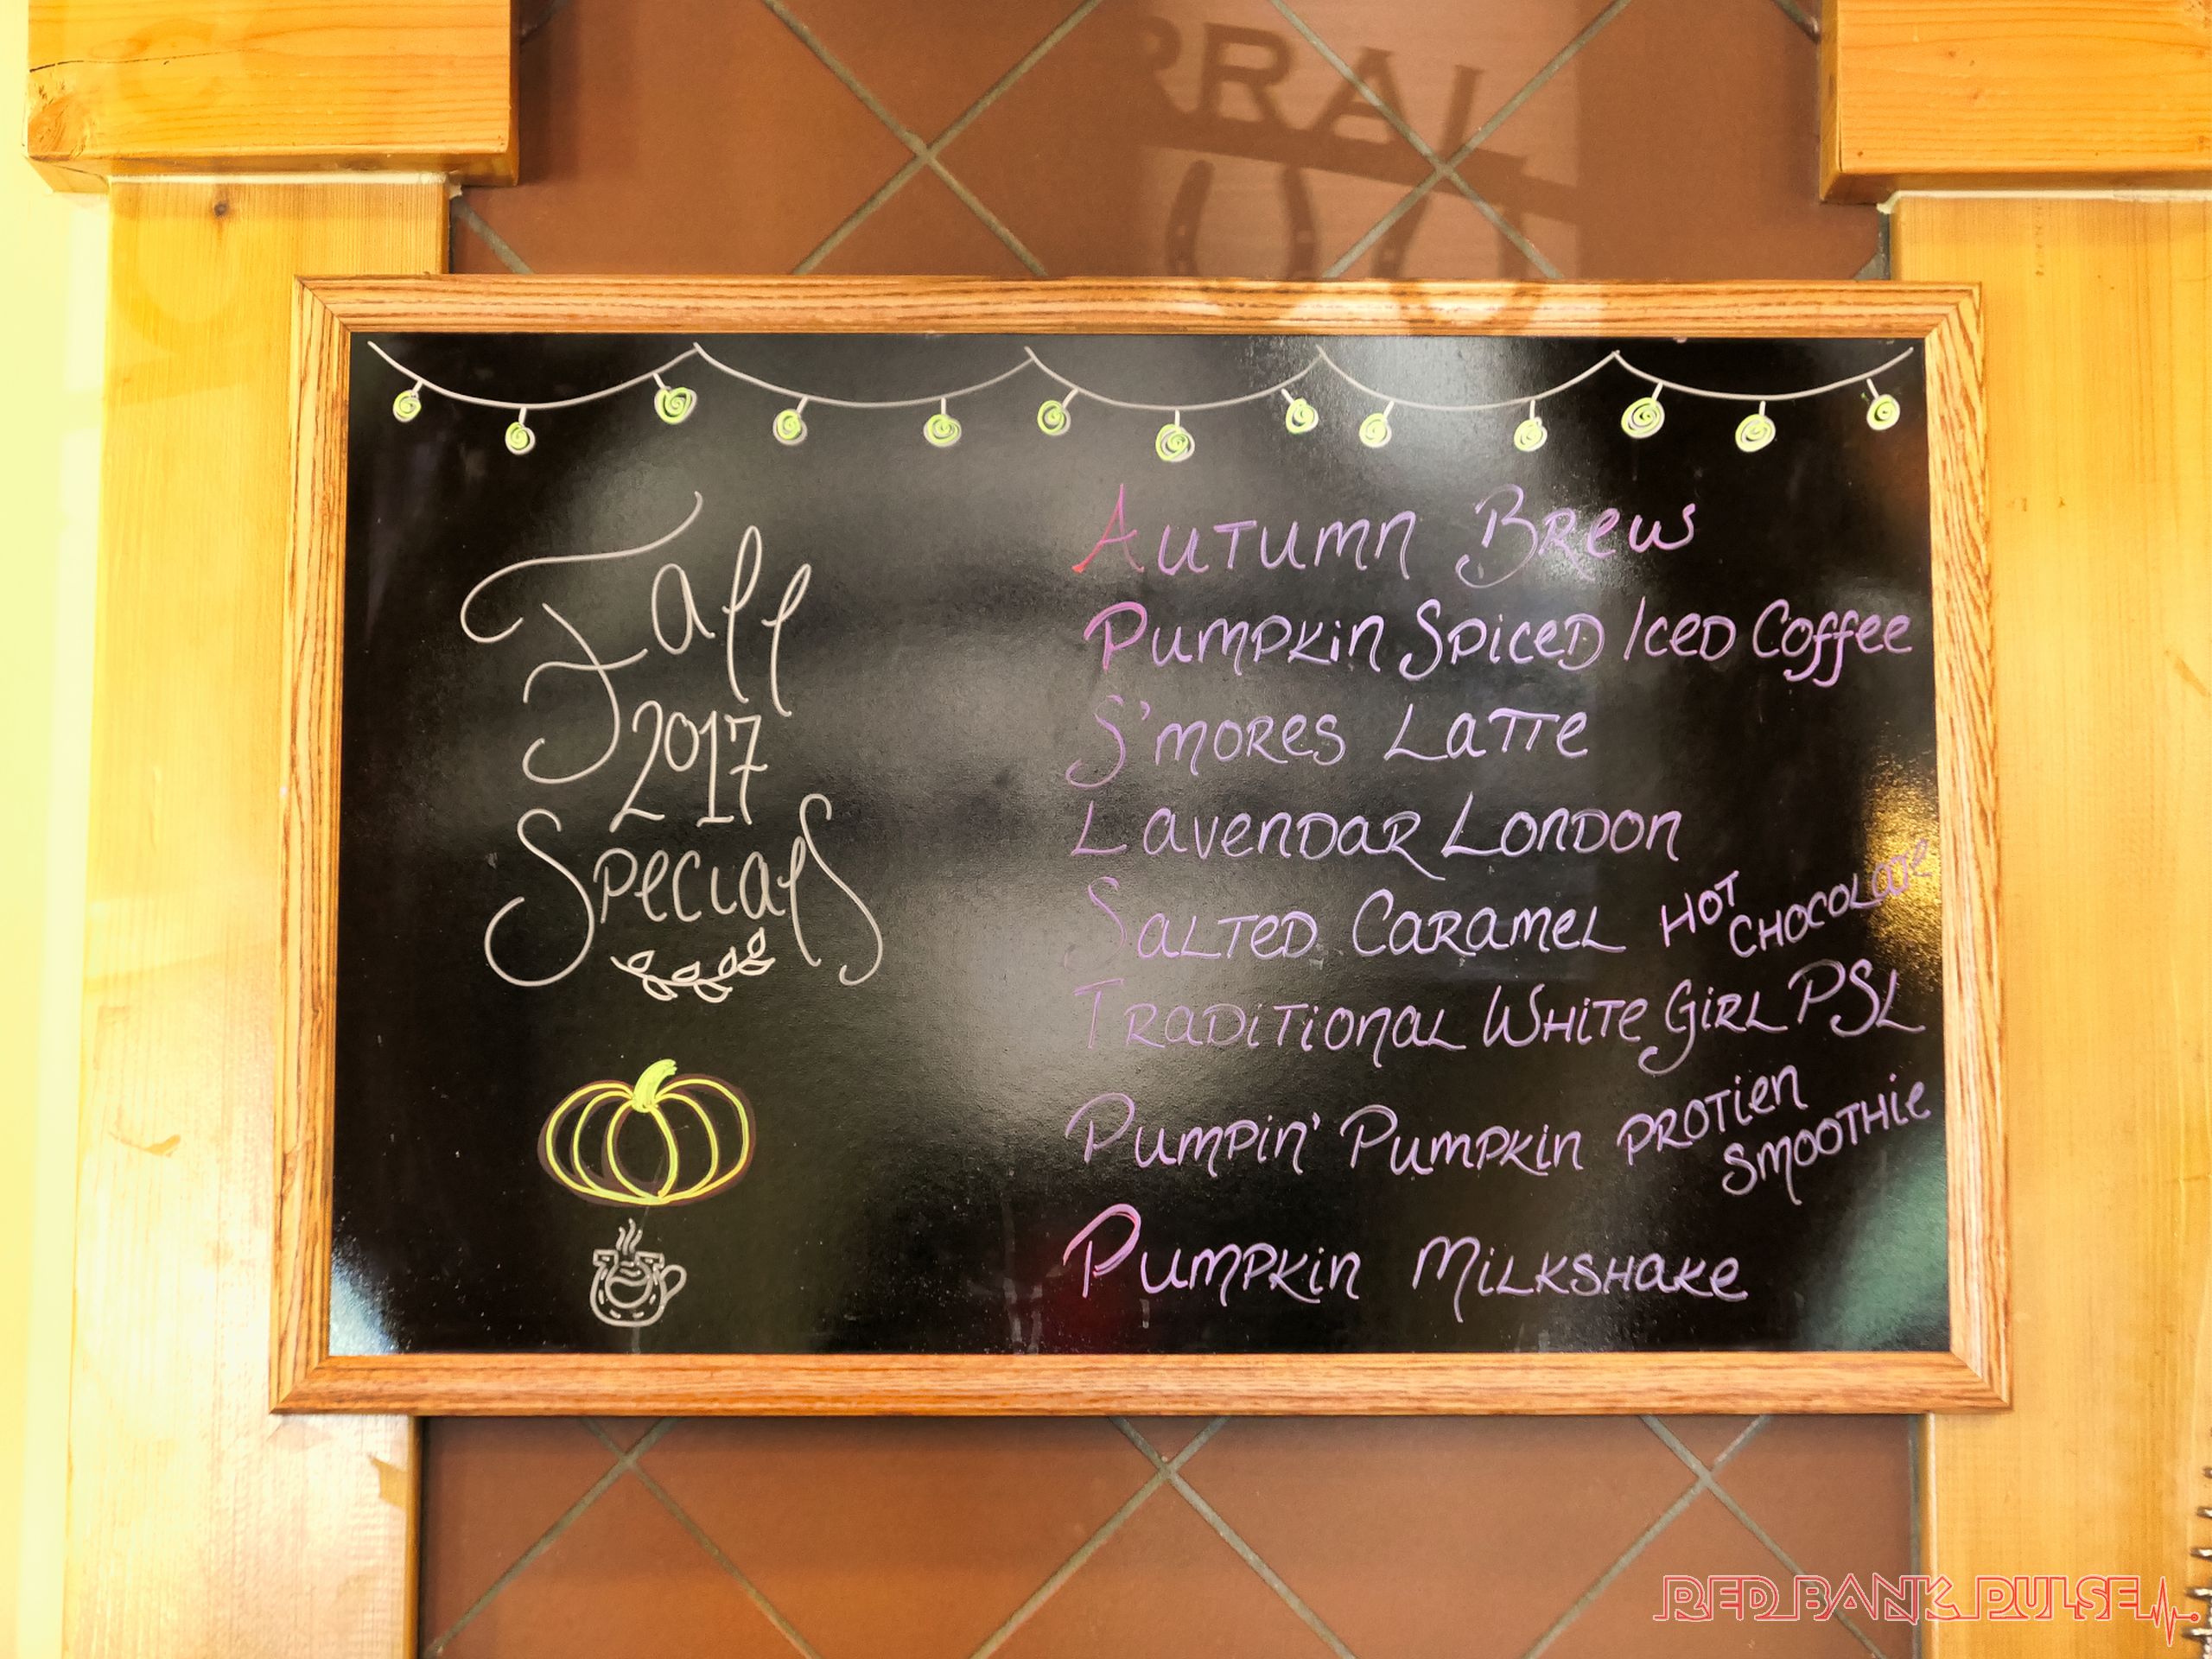 RRAL
Fall
2017
Specials
Autumn Brew
Pumpkin Spiced Iced Coffee
S'mores Latte
Lavendar London
Salted Caramel Hot Chocolate
Traditional White Girl PSL
Pumpin' Pumpkin Protien Smoothie
Pumpkin Milkshake
RED BANK PULSE